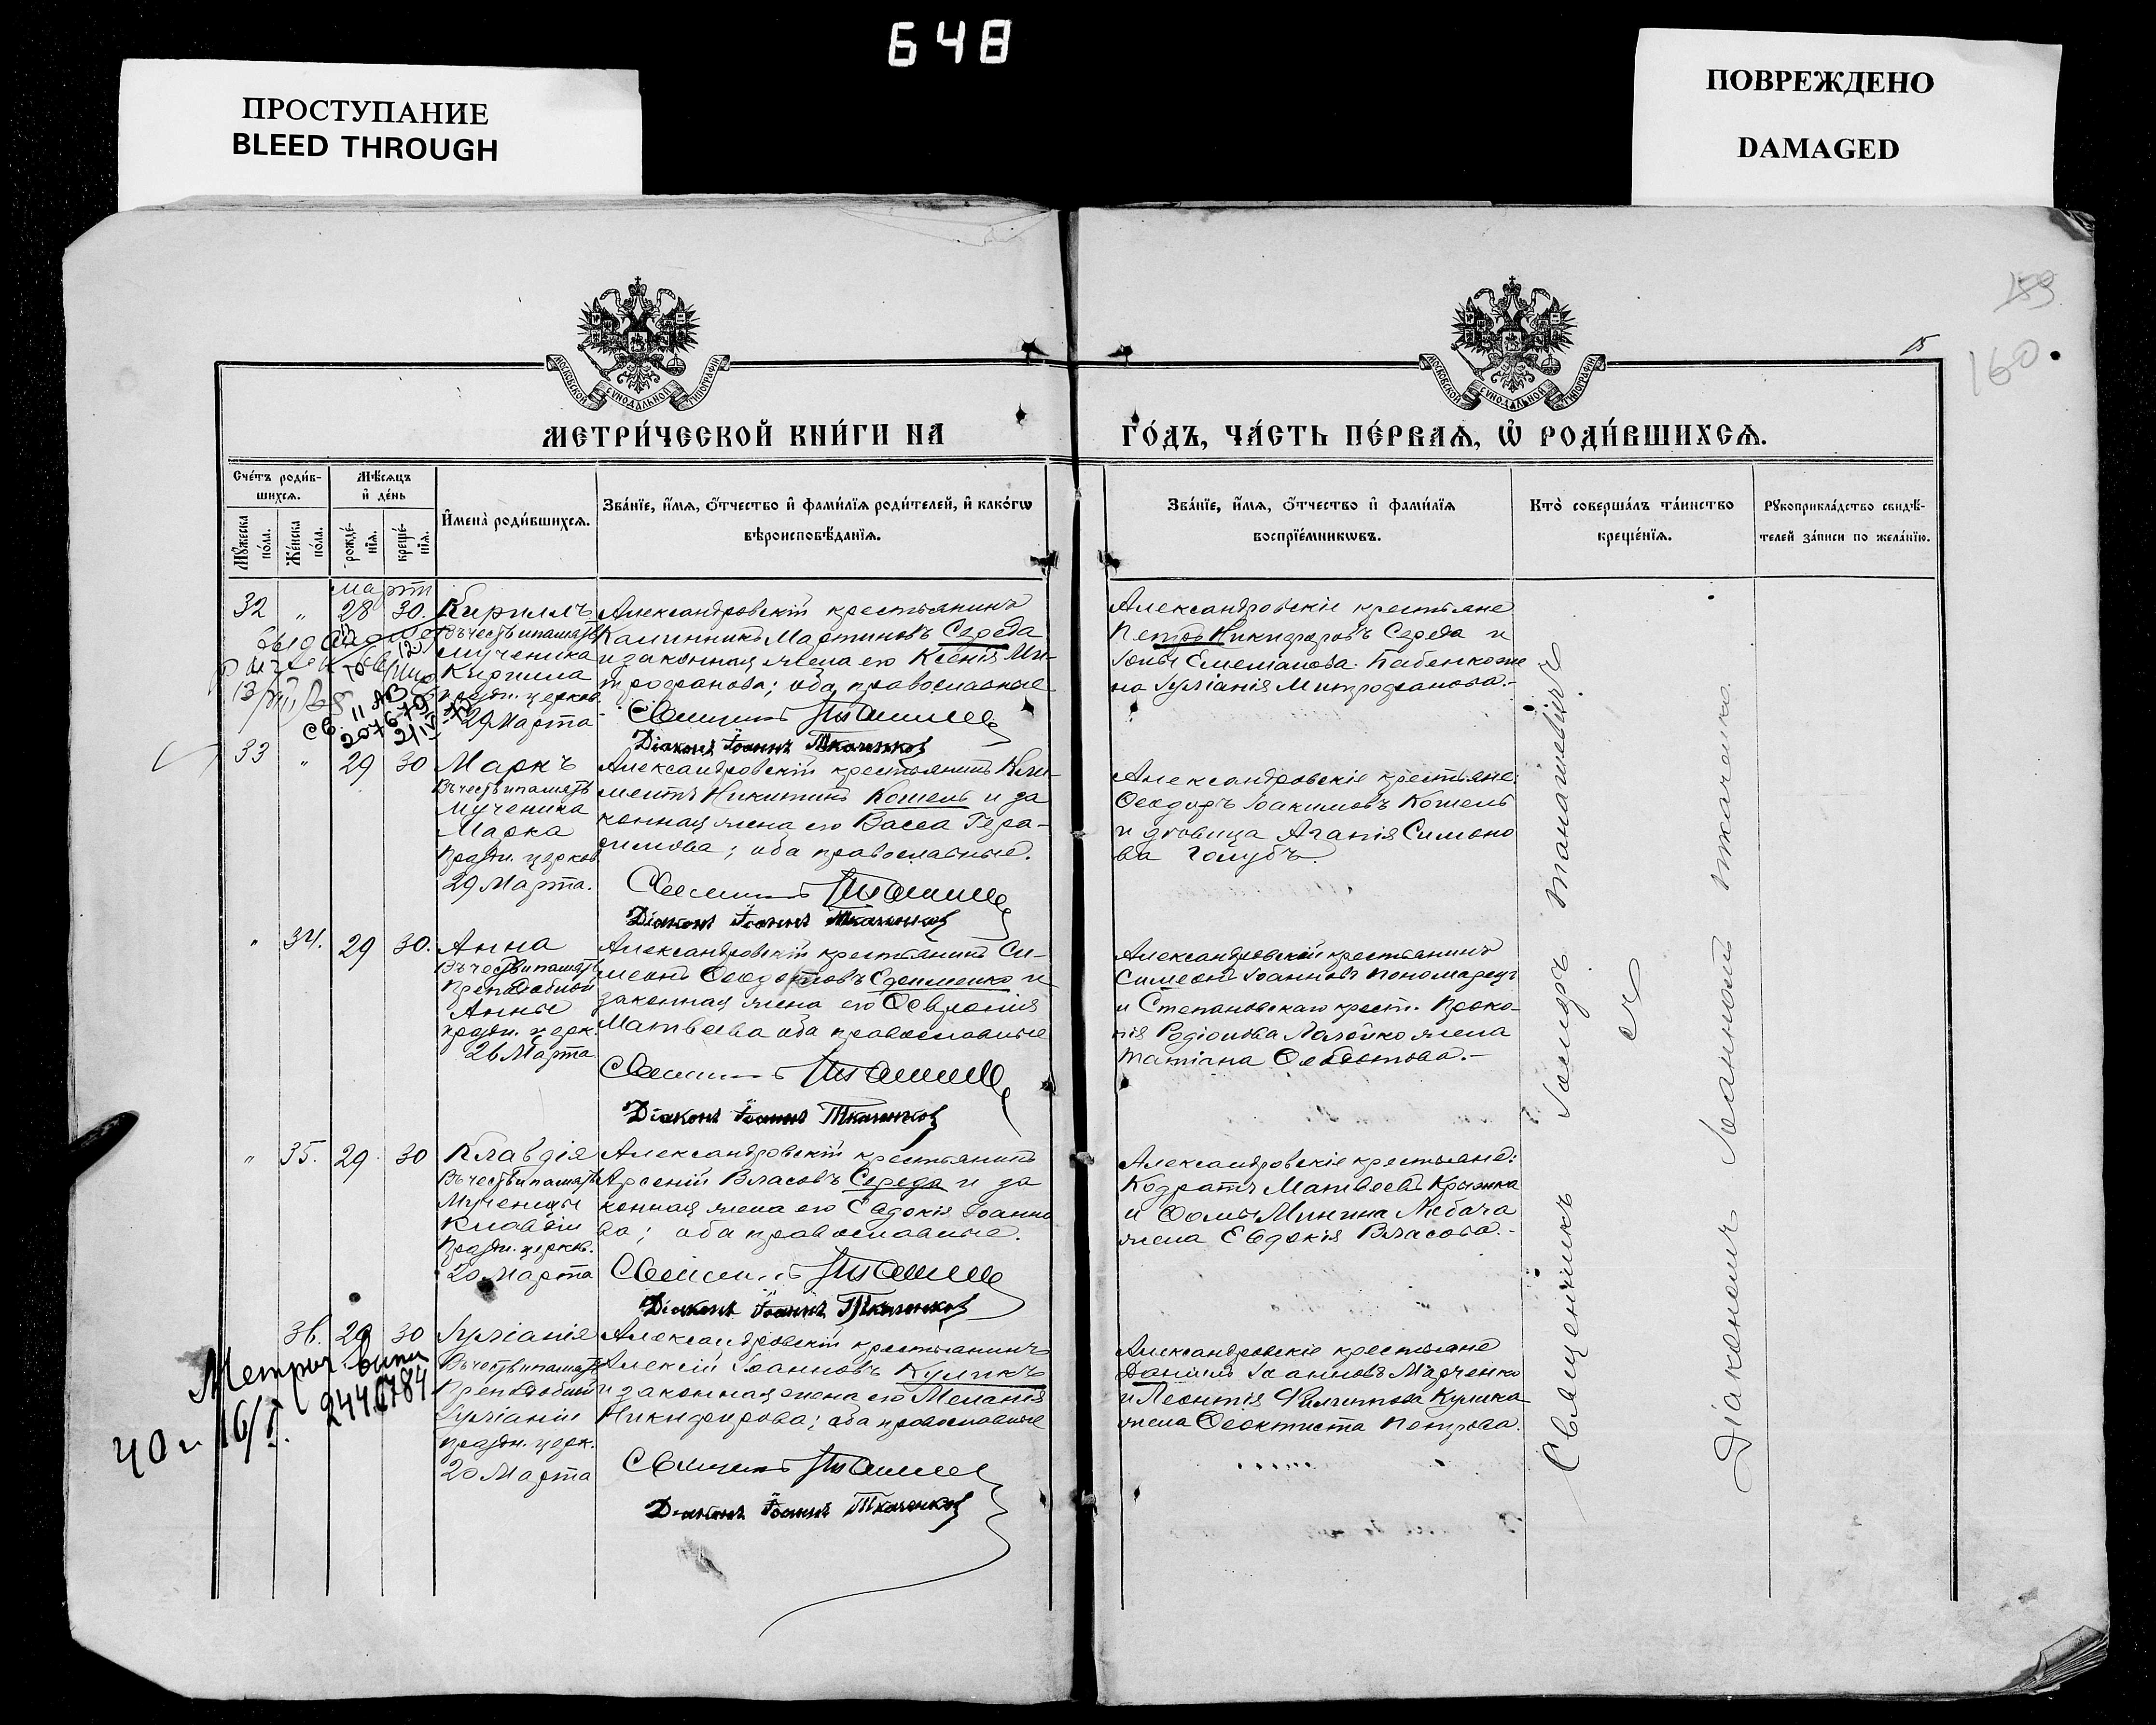 648
ПРОСТУПАНИЕ
BLEED THROUGH
ПОВРЕЖДЕНО
DAMAGED
159
160.
15
МОСКОВСКОЙ СѴНОДАЛЬНОЙ ТИПОГРАФІИ
МОСКОВСКОЙ СѴНОДАЛЬНОЙ ТИПОГРАФІИ
МЕТРИ́ЧЕСКОЙ КНИ́ГИ НА
ГО́ДЪ, ЧА́СТЬ ПЕ́РВАѦ, Ѡ҆ РОДИ́ВШИХСѦ.
Сче́тъ роди́в-
шихсѧ.
Мꙋ́жеска
по́ла.
Же́нска
по́ла.
Мѣ́сѧцъ
и҆ де́нь
рожде́-
нїѧ.
креще́-
нїѧ.
И҆мена̀ роди́вшихсѧ.
Зва́нїе, и҆́мѧ, ѻ҆́тчество и҆ фами́лїѧ роди́телей, и҆ како́гѡ
вѣроисповѣ́данїѧ.
Зва́нїе, и҆́мѧ, ѻ҆́тчество и҆ фами́лїѧ
воспрїе́мникѡвъ.
Кто̀ соверша́лъ та́инство
креще́нїѧ.
Рꙋкоприкла́дство свидѣ́-
телей за́писи по жела́нїю.
Мартъ
32 " 28 30.
Кириллъ
Въ честь и память
Мученика
Кирилла
праздн. церков.
29 Марта
Александровскій крестьянинъ
Калинникъ Мартиновъ Середа
и законная жена его Ксенія Ми-
трофанова; оба православные
Священникъ
Діаконъ Іоаннъ Ткаченко
Александровскіе крестьяне
Петръ Никифоровъ Середа и
Іоны Емельянова Бабенко же
на Іуліанія Митрофанова.-
св. II АВ
207679
2/IV
33 " 29 30
Маркъ
Въ честь и память
Мученика
Марка
праздн. церков.
29 Марта.
Александровскій крестьянинъ Кли-
ментъ Никитинъ Кошель и за
конная жена его Васса Гера-
симова; оба православные.
Священникъ
Діаконъ Іоаннъ Ткаченко
Александровскіе крестьяне:
Ѳеодоръ Іоакимовъ Кошель
и дѣвица Агапія Симоно
ва Голубъ
" 34. 29 30.
Анна
Въ честь и память
Преподобной
Анны
праздн. церк.
26 Марта
Александровскій крестьянинъ Си-
меонъ Ѳеодотовъ Ефименко и
законная жена его Ѳевронія
Матвѣева оба православные
Священникъ
Діаконъ Іоаннъ Ткаченко
Александровскій крестьянинъ
Симеонъ Іоанновъ Пономарецъ
и Степановскаго крест. Проко-
пія Родіонова жена
Татіана Ѳеодотова.-
" 35. 29 30
Клавдія
Въ честь и память
Мученицы
Клавдіи
праздн. церков.
20 Марта
Александровскій крестьянинъ
Арсеній Власовъ Середа и за
конная жена его Евдокія Іоанно
ва; оба православные.
Священникъ
Діаконъ Іоаннъ Ткаченко
Александровскіе крестьяне:
Кодратъ Матвѣевъ
и Ѳомы Минина
жена Евдокія Власова.-
36. 29 30
Іуліанія
Въ честь и память
Преподобной
Іуліаніи
праздн. церк.
20 Марта
Александровскій крестьянинъ
Алексій Іоанновъ Куликъ
и законная жена его Меланія
Никифорова; оба православные
Священникъ
Діаконъ Іоаннъ Ткаченко
Александровскіе крестьяне
Даніилъ Іоанновъ Марченко
и Леонтія Филиппова Кулика
жена Ѳеоктиста Петрова.
2446784
40 г. 16/I.
Священникъ
съ
Діакономъ Іоанномъ Ткаченко